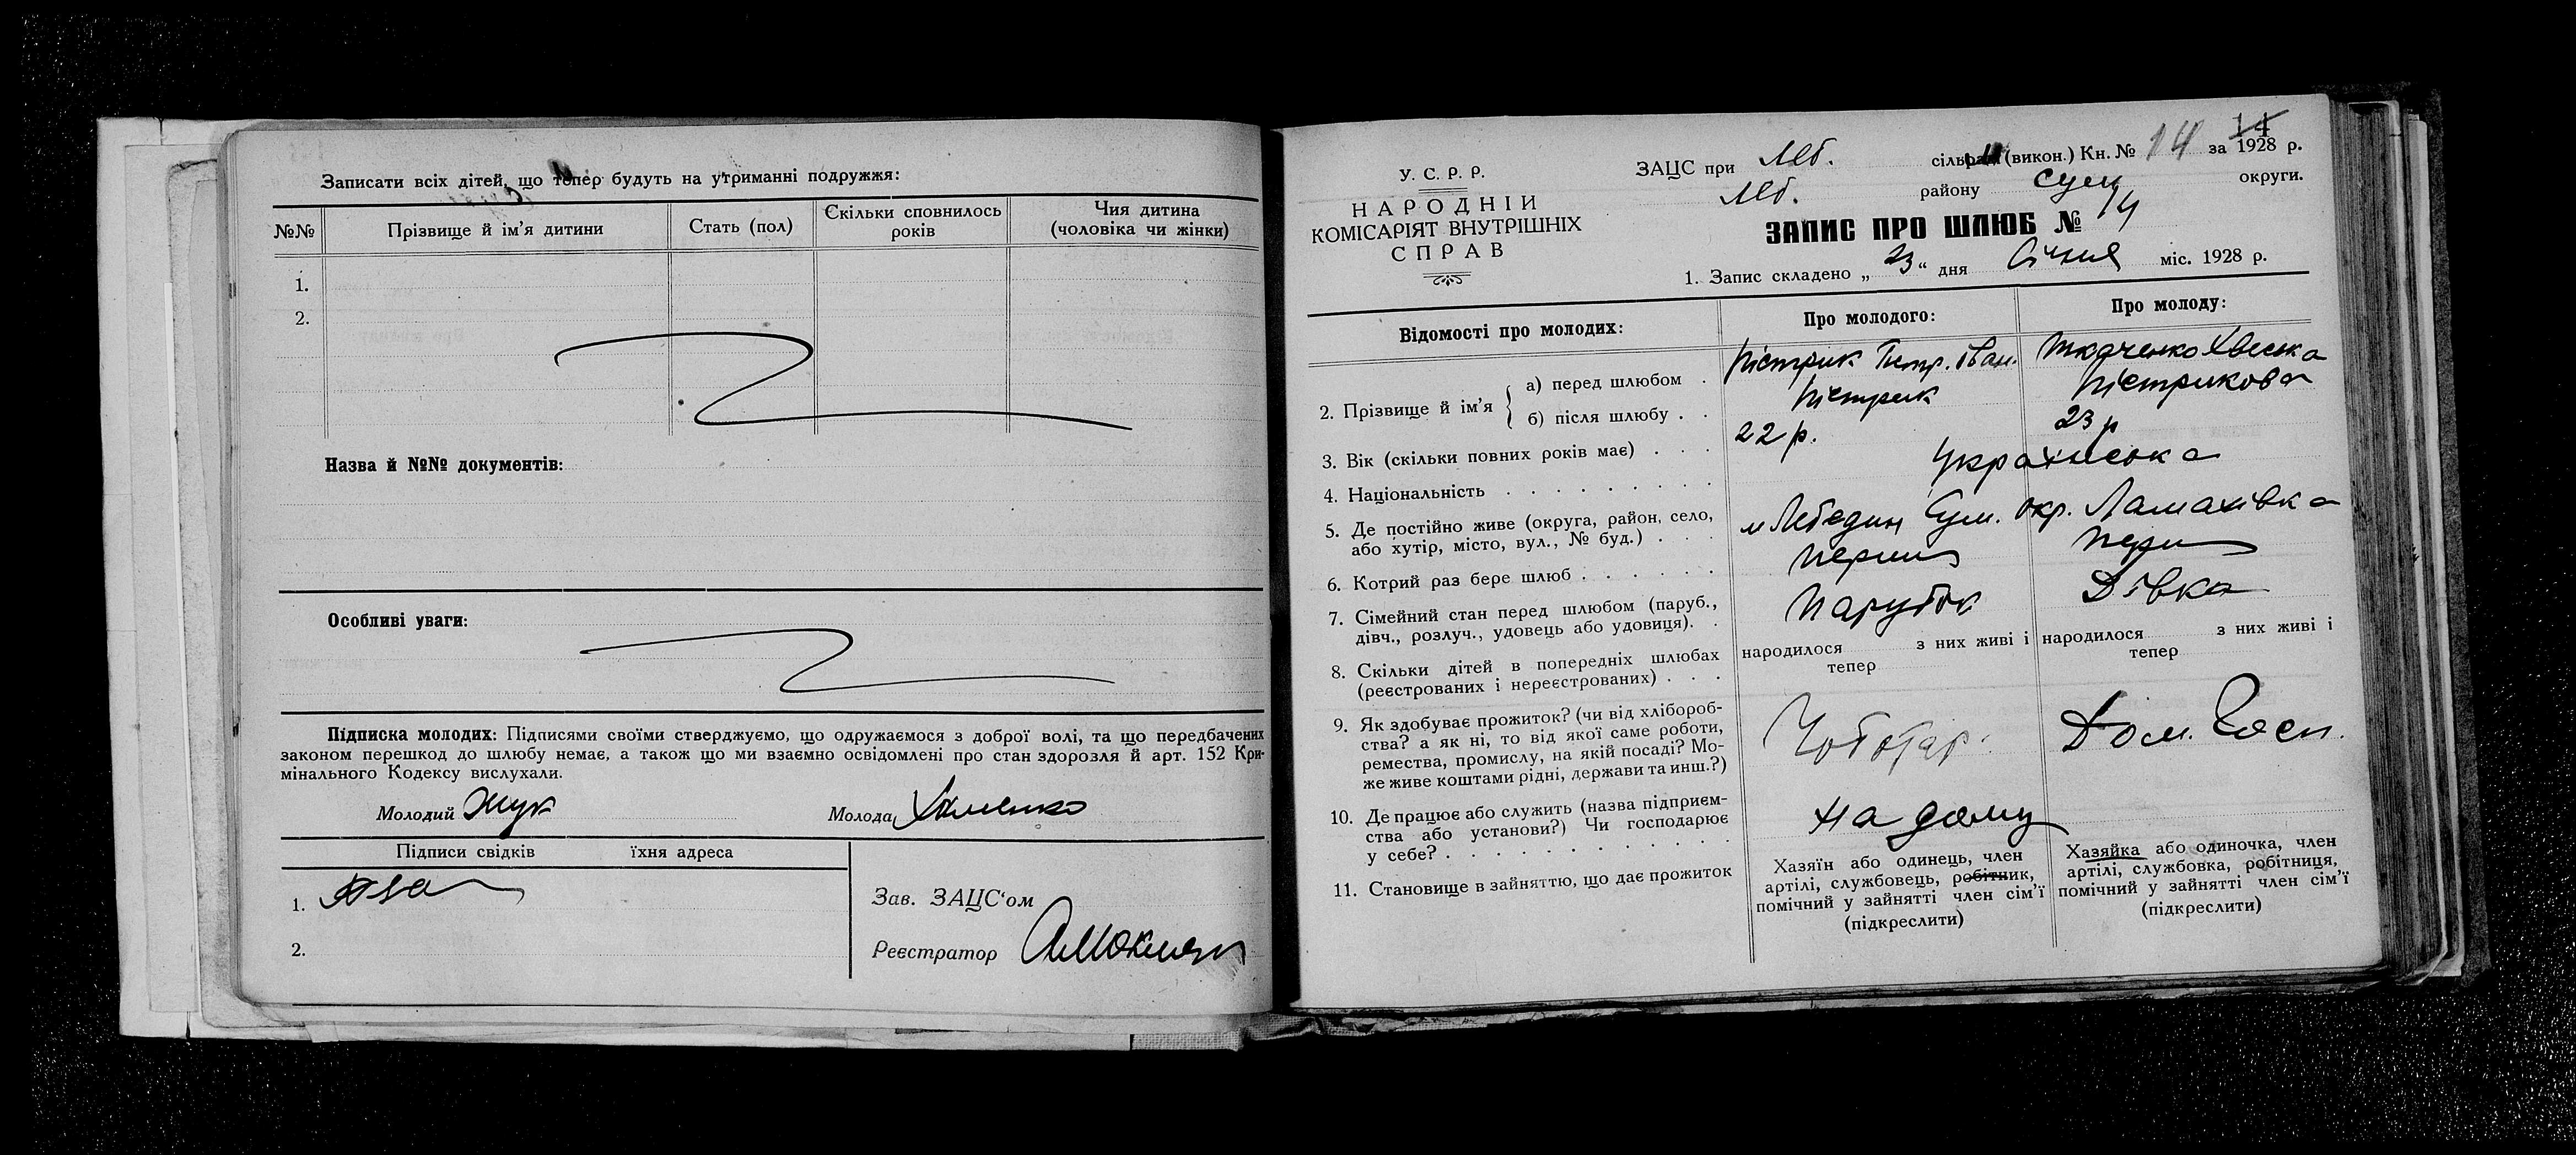 Записати всіх дітей, що тепер будуть на утриманні подружжя:
№№ Прізвище й ім'я дитини Стать (пол) Скільки сповнилось років Чия дитина (чоловіка чи жінки)
1.
2.
Назва й №№ документів:
Особливі уваги:
Підписка молодих: Підписями своїми стверджуємо, що одружаємося з доброї волі, та що передбачених
законом перешкод до шлюбу немає, а також що ми взаємно освідомлені про стан здорозля й арт. 152 Кри-
мінального Кодексу вислухали.
Молодий Жук Молода Хоменко
Підписи свідків їхня адреса
1.
2.
Зав. ЗАЦС'ом
Реєстратор
У. С. Р. Р.
НАРОДНІЙ
КОМІСАРІЯТ ВНУТРІШНІХ
СПРАВ
14
ЗАЦС при Леб. сільради (викон.) Кн. № 14 за 1928 р.
Леб. району Сум округи.
ЗАПИС ПРО ШЛЮБ № 14
1. Запис складено „23“ дня Січня міс. 1928 р.
Відомості про молодих: Про молодого: Про молоду:
2. Прізвище й ім'я
а) перед шлюбом . Пістрик Петр. Іван. Ткаченко Хвеська
б) після шлюбу . . Пістрик Пістрикова
3. Вік (скільки повних років має) . . . 22 р. 23 р
4. Національність . . . . . . . . . Українська
5. Де постійно живе (округа, район, село,
або хутір, місто, вул., № буд.) . . . м Лебедин Сум. окр. Ламахівка
6. Котрий раз бере шлюб . . . . . . перший перш
7. Сімейний стан перед шлюбом (паруб.,
дівч., розлуч., удовець або удовиця). . Парубок Дівка
8. Скільки дітей в попередніх шлюбах
(реєстрованих і нереєстрованих) . . .
народилося з них живі і тепер
народилося з них живі і тепер
9. Як здобуває прожиток? (чи від хлібороб-
ства? а як ні, то від якої саме роботи,
ремества, промислу, на якій посаді? Мо-
же живе коштами рідні, держави та инш.?)
Чоботар. Дом. Госп.
10. Де працює або служить (назва підприєм-
ства або установи?) Чи господарює
у себе? . . . . . . . . . . . .
на дому
11. Становище в зайняттю, що дає прожиток
Хазяїн або одинець, член
артілі, службовець, робітник,
помічний у зайнятті член сім'ї
(підкреслити)
Хазяйка або одиночка, член
артілі, службовка, робітниця,
помічний у зайнятті член сім'ї
(підкреслити)